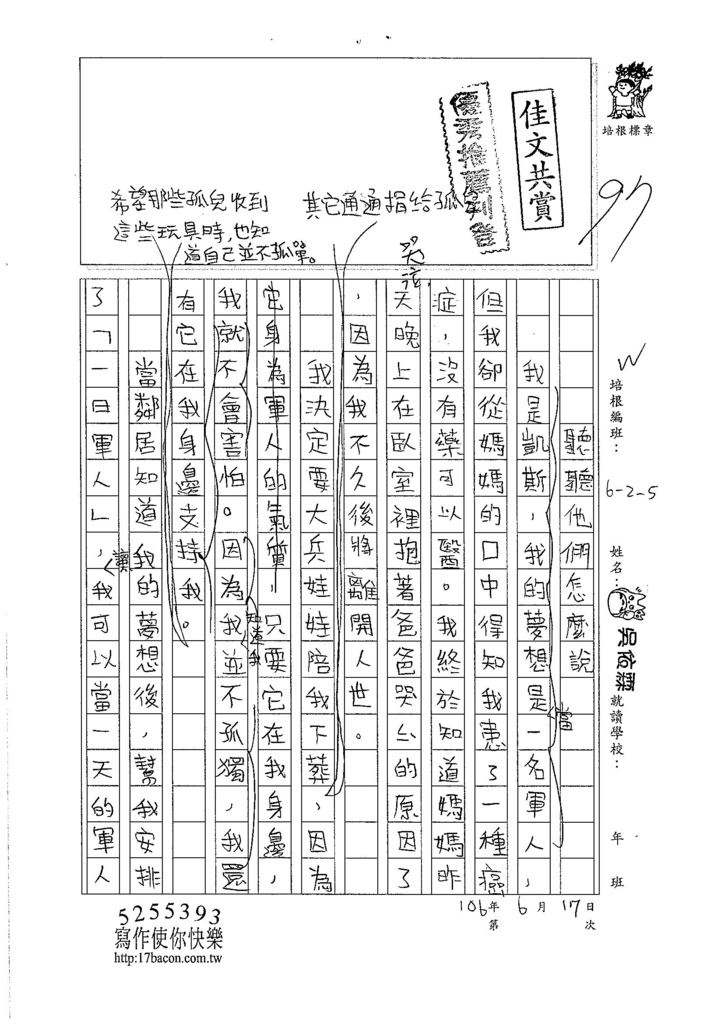 培根標章
佳文共賞
優秀推薦刊登
97
其它通通捐給孤兒
希望那些孤兒收到
這些玩具時,也知
道自己並不孤單。
哭泣
W
培根編班：6-2-5
姓名：吳佑霖
就讀學校：
年 班
聽聽他們怎麼說
我是凱斯，我的夢想是一名軍人，
當
但我卻從媽媽的口中得知我患了一種癌
症，沒有藥可以醫。我終於知道媽媽昨
天晚上在臥室裡抱著爸爸哭ㄙ的原因了
，因為我不久後將離開人世。
我決定要大兵娃娃陪我下葬，因為
它身為軍人的氣質，只要它在我身邊，
我就不會害怕。因為我並不孤獨，我還
知道我
有它在我身邊支持我。
當鄰居知道我的夢想後，幫我安排
了「一日軍人」，我可以當一天的軍人
讓
106年6月17日
第 次
5255393
寫作使你快樂
http:17bacon.com.tw